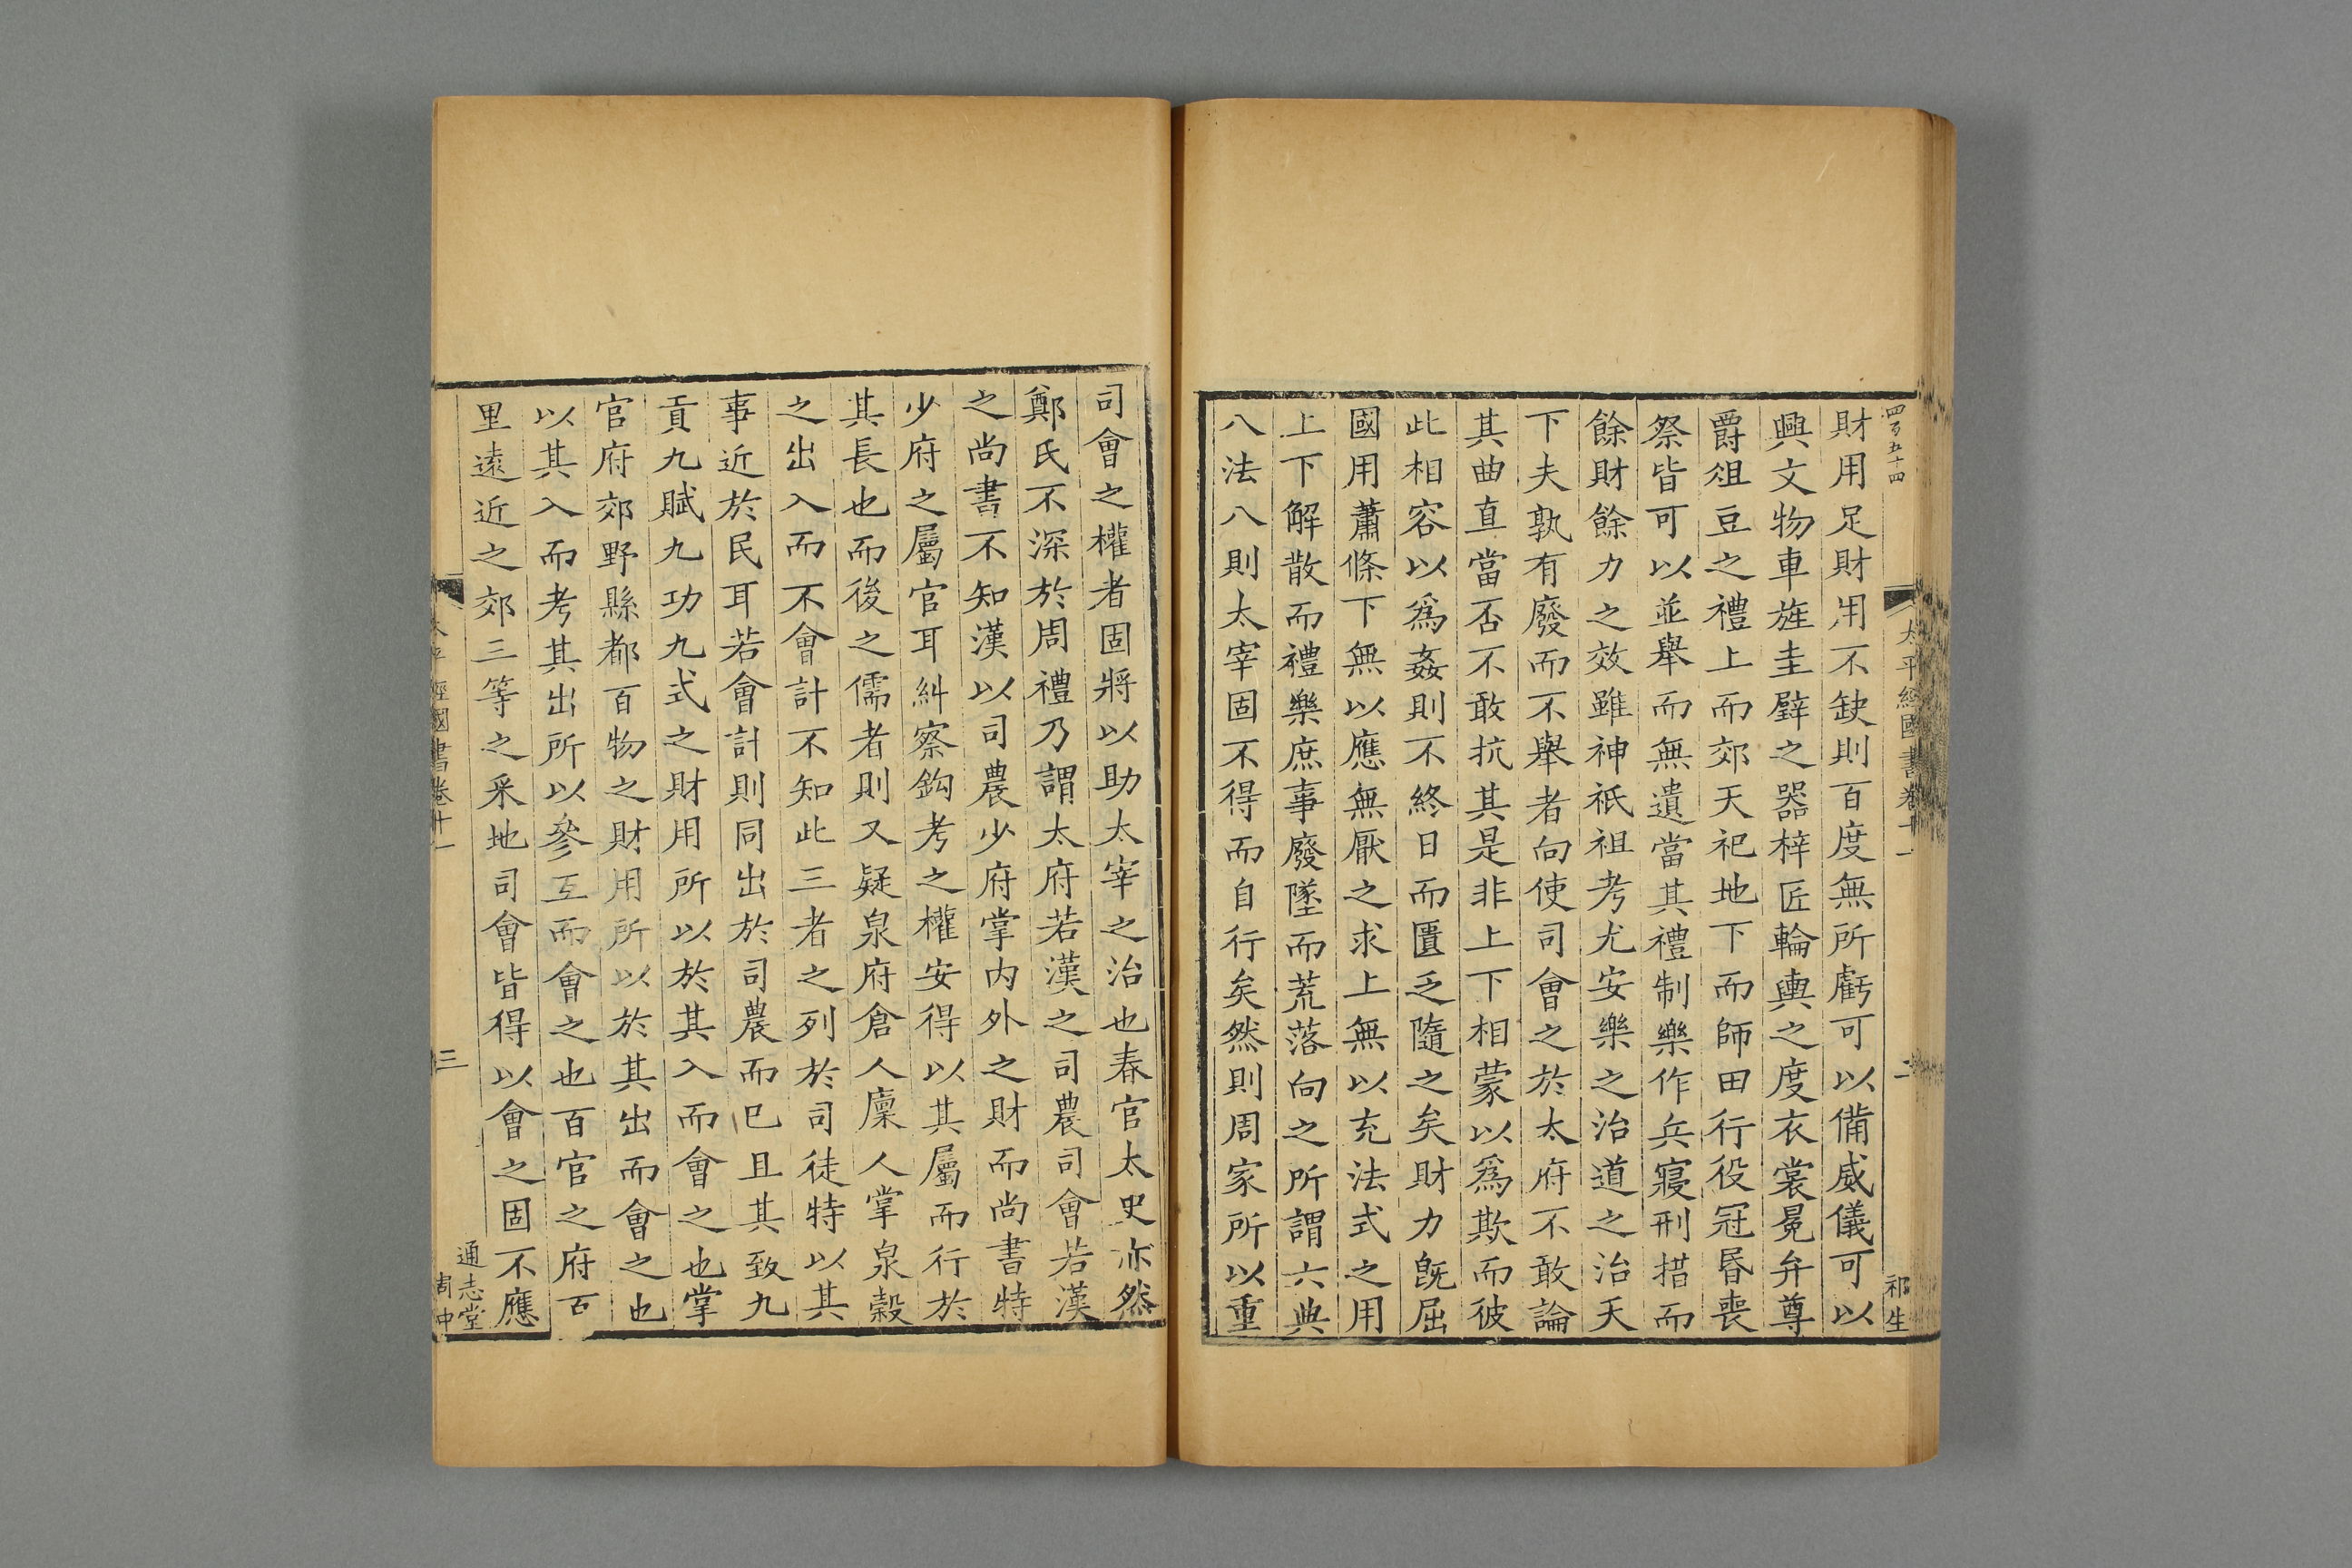 四百五十四
太平經國書卷十一
二
祁生
財用足財用不缺則百度無所虧可以備威儀可以
興文物車旌圭璧之器梓匠輪輿之度衣裳冕弁尊
爵俎豆之禮上而郊天祀地下而師田行役冠昏喪
祭皆可以並舉而無遺當其禮制樂作兵寢刑措而
餘財餘力之效雖神祇祖考尤安樂之治道之治天
下夫孰有廢而不舉者向使司會之於太府不敢論
其曲直當否不敢抗其是非上下相蒙以爲欺而彼
此相容以爲姦則不終日而匱乏隨之矣財力旣屈
國用蕭條下無以應無厭之求上無以充法式之用
上下解散而禮樂庶事廢墜而荒落向之所謂六典
八法八則太宰固不得而自行矣然則周家所以重
司會之權者固將以助太宰之治也春官太史亦然
鄭氏不深於周禮乃謂太府若漢之司農司會若漢
之尚書不知漢以司農少府掌內外之財而尚書特
少府之屬官耳糾察鈎考之權安得以其屬而行於
其長也而後之儒者則又疑泉府倉人廩人掌泉穀
之出入而不會計不知此三者之列於司徒特以其
事近於民耳若會計則同出於司農而巳且其致九
貢九賦九功九式之財用所以於其入而會之也掌
官府郊野縣都百物之財用所以於其出而會之也
以其入而考其出所以參互而會之也百官之府百
里遠近之郊三等之采地司會皆得以會之固不應
太平經國書卷十一
三
通志堂
周中